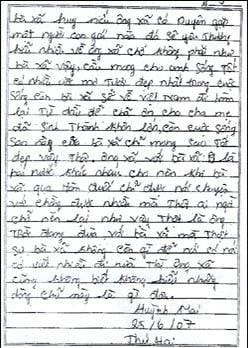 bà xã hug nếu ông xã có Duyên gặp
một người con gái nào đó sẽ yêu thương
hiểu nhiều về ông xã chứ không phải như
bà xã vậy, cầu mong cho anh sống Tốt
có nhiều ước mơ Tươi đẹp nhất trong cuộc
sống còn bà xã sẽ về Việt Nam để làm
lại Từ đầu để chờ ơn cho cha mẹ
đã sinh Thành khôn lớn, còn cuộc sống
sau này của bà xã chỉ mong sao Tốt
đẹp vậy Thôi, ông xã với bà xã là
hai nước khác nhau cho nên khi bà
xã qua tới chỉ được nói chuyện
với chồng được nhiều mà Thấy ai ngờ
chỉ nên lại như vậy Thật là ông
Trời đang đùa với bà xã mà Thật
sự bà xã không cần gì để nói có nói
có viết nhiều đi nữa Thì ông xã
cũng không biết không hiểu những
dòng chữ này là gì đâu.
Huỳnh Mai
25/6/07
Thứ Hai